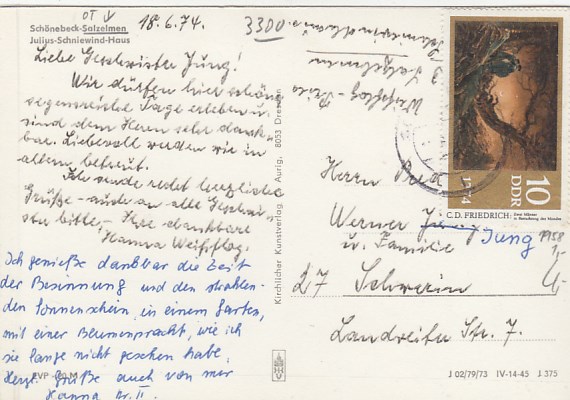 OT
Schönebeck-Salzelmen
Julius-Schniewind-Haus
18.6.74.
3300
Liebe Geschwister Jung!
Wir dürfen hier schöne
segensreiche Tage erleben u.
sind dem Herrn sehr dank-
bar. Liebevoll werden wir in
allem betreut.
Ich sende recht herzliche
Grüße - auch an alle Geschwi-
ster bitte, - Ihre dankbare
Hanna Weißpflog.
Ich genieße dankbar die Zeit
der Besinnung und den strahlen-
den Sonnenschein, in einem Garten,
mit einer Blumenpracht, wie ich
sie lange nicht gesehen habe.
Herzl. Grüße auch von mir
Hanna
EVP
Kirchlicher Kunstverlag Aurig, 8053 Dresden
Salzelmen
10
DDR
1974
C. D. FRIEDRICH
Zwei Männer
in Betrachtung des Mondes
Herrn
Werner Jung
u. Familie
27 Schwerin
Landreiter Str. 7.
J 02/79/73 IV-14-45 J 375